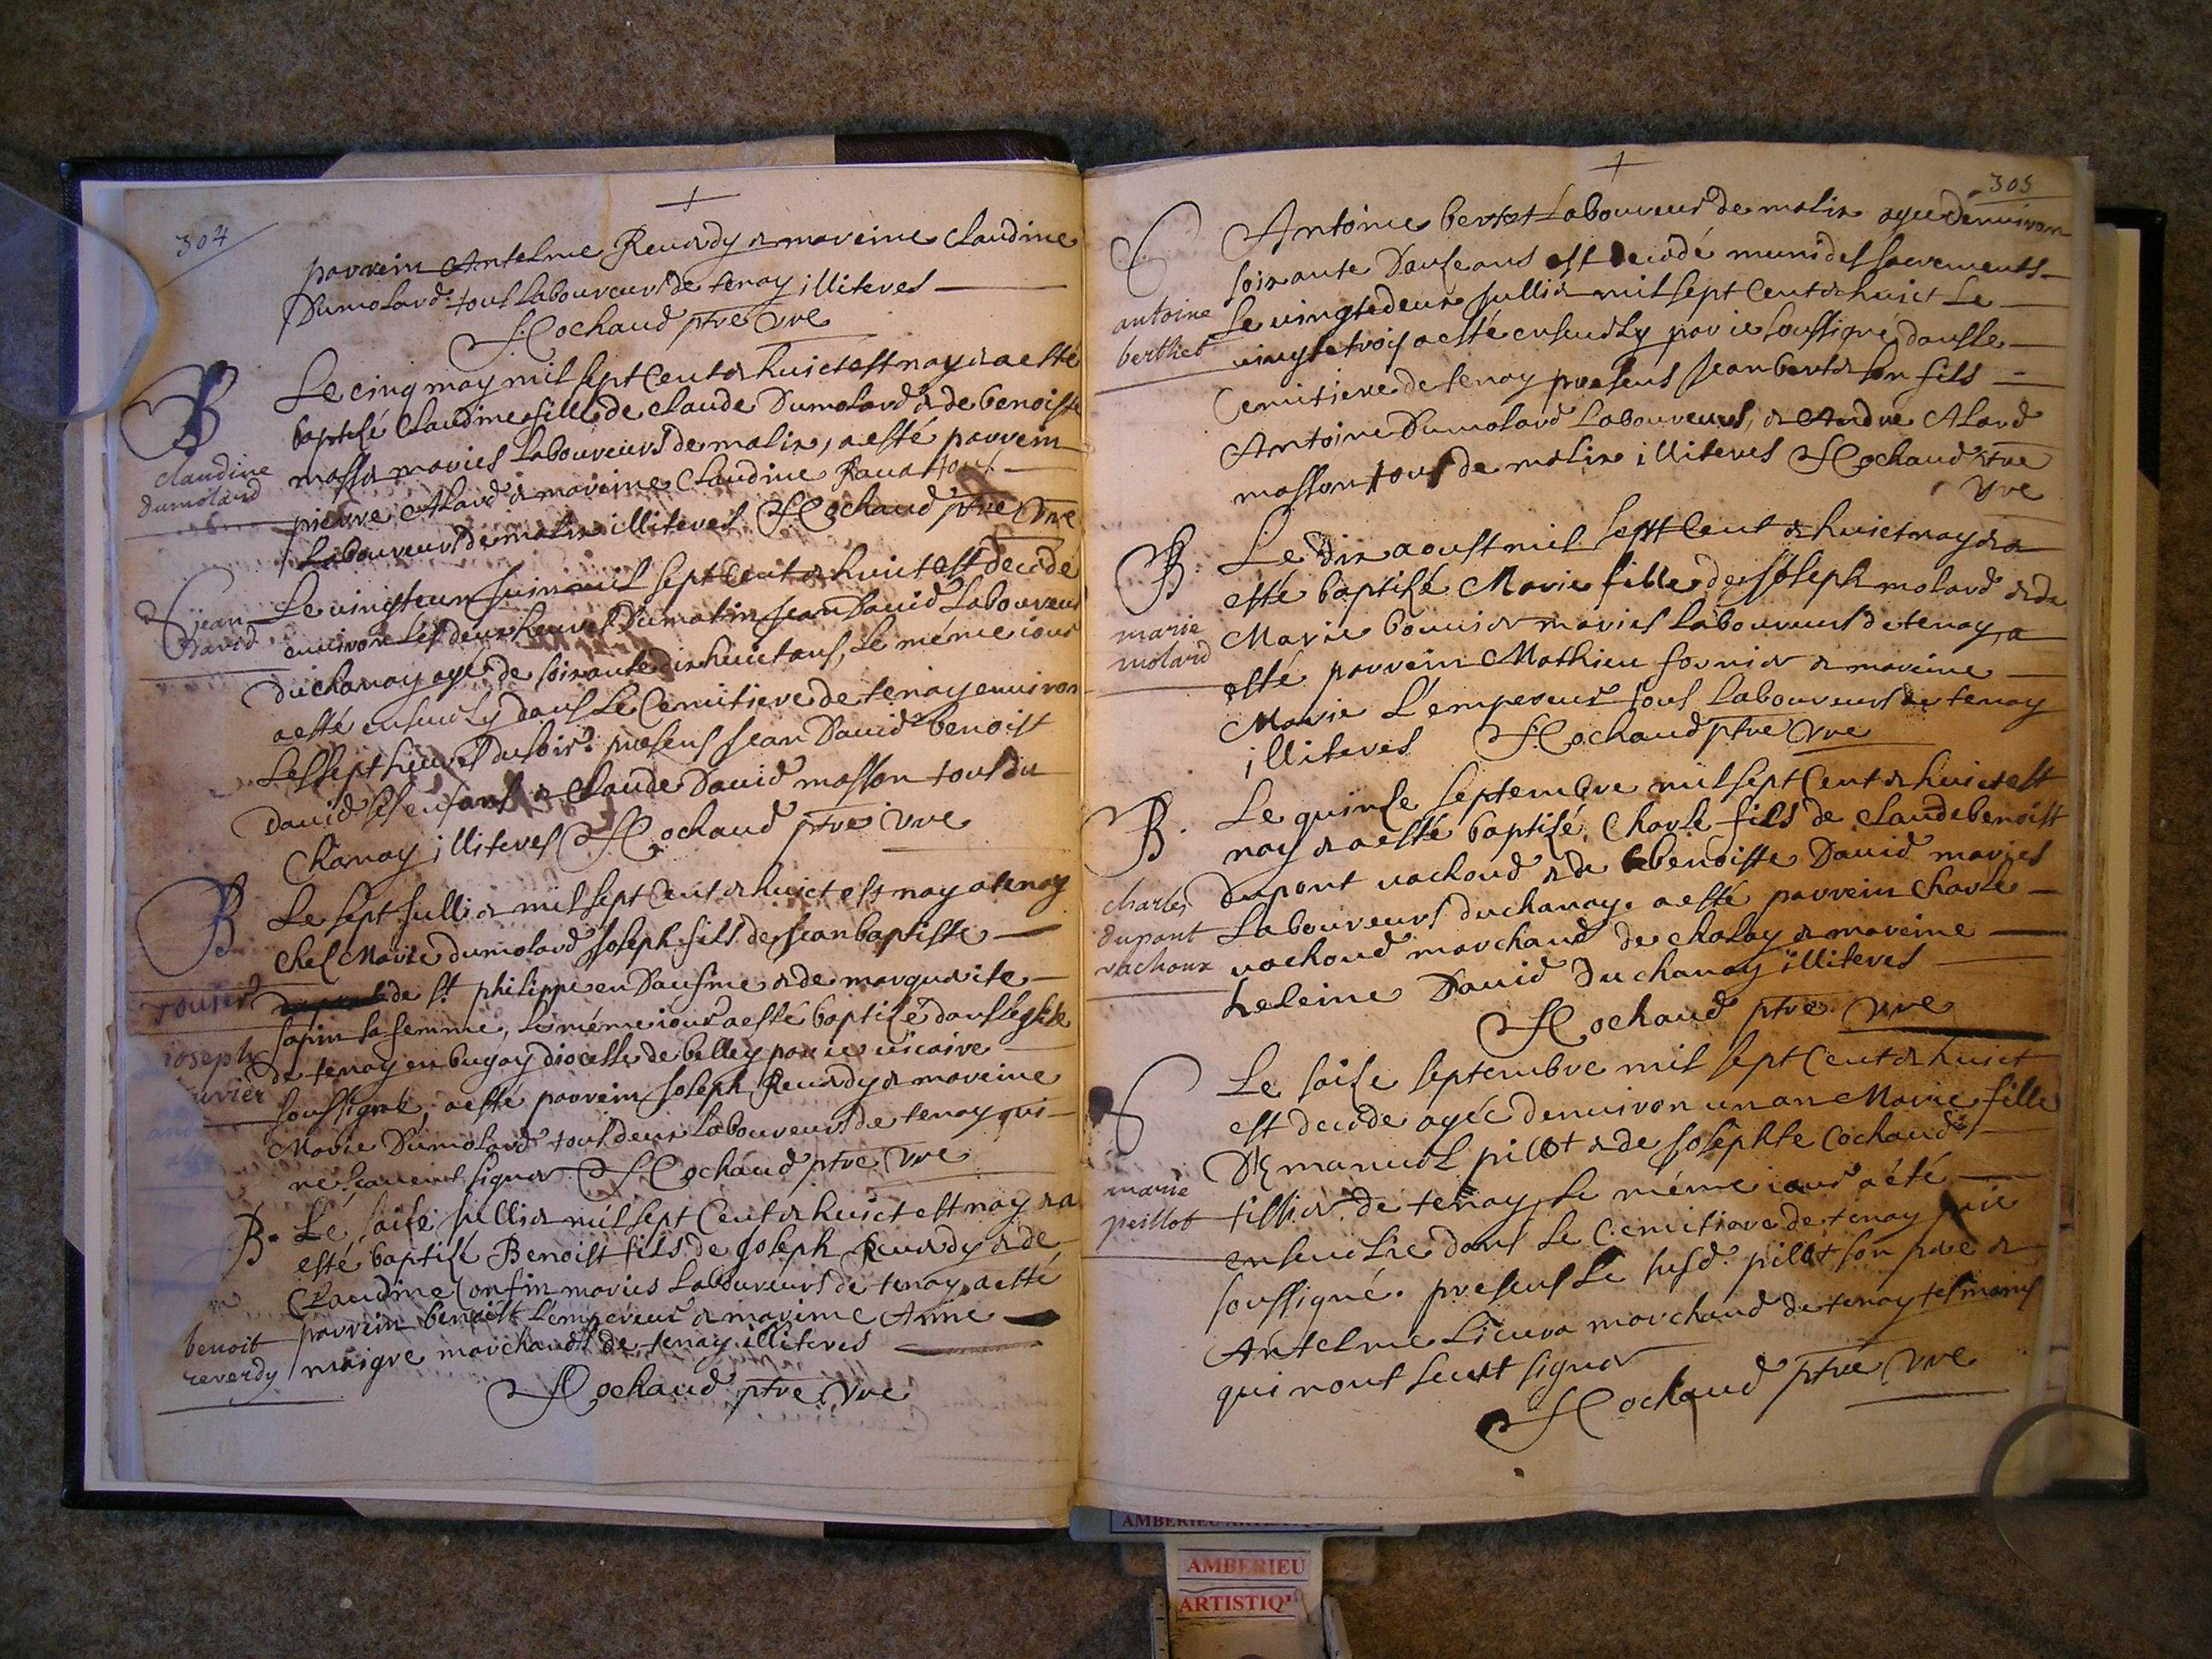 304
parrein Antelme Reverdy & mareine Claudine
Dumolard tous laboureurs de tenay illiteres
Cochaud ptre vre
B
claudine
dumolard
Le cinq may mil sept cent & huict est nay & a esté
baptisé Claudine fille de Claude Dumolard & de benoiste
masson maries laboureurs de malix, a esté parrein
pierre Alard & mareine Claudine Ravat tous
laboureurs de malix illiteres Cochaud ptre vre
S jean
david
Le vingteun juin mil sept cent & huict est decedé
environ les deux heures du matin jean David laboureur
du chanay agé de soixante dix huict ans, le méme iour
a esté ensevely dans le Cemitiere de tenay environ
les sept heures du soir presens jean David benoist
David ses enfans & Claude David masson tous du
Chanay illiteres Cochaud ptre vre
B
ioseph
Le sept jullier mil sept cent & huict est nay a tenay
chez Marie dumolard joseph fils de jean baptiste
de St philippe en Daufine & de marguerite
sapin sa femme, le méme iour a esté baptisé dans l'eglise
de tenay en bugay diocesse de belley par ie vicaire
soussigné, a esté parrein joseph Reverdy & mareine
Marie Dumolard tous deux laboureurs de tenay qui
ne sçavent signer Cochaud ptre vre
B.
benoit
reverdy
Le saise jullier mil sept cent & huict est nay & a
esté baptisé Benoist fils de joseph Reverdy & de
Claudine Confin maries laboureurs de tenay, a esté
parrein benoist l'empereur & mareine Anne
maigre marchands de tenay illiteres
Cochaud ptre vre
305
S
antoine
berthet
Antoine bertet laboureur de malix agée d'environ
soixante d'ouse ans est decedé muni des sacrements
le vingtedeux jullier mil sept cent & huict le
vingtetrois a esté ensevely par ie soussigné dans le
Cemitiere de tenay presens jean bertet son fils
Antoine Dumolard laboureurs, & Andre Alard
masson tous de malix illiteres Cochaud ptre
vre
B
marie
molard
Le dix aoust mil sept cent & huict nay & a
esté baptisé Marie fille de joseph molard & de
Marie bouvier maries laboureurs de tenay, a
esté parrein Mathieu fornier & mareine
Marie L'empereur tous laboureurs de tenay
illiteres Cochaud ptre vre
B.
charles
dupont
vachoux
Le quinse septembre mil sept cent & huict est
nay & a esté baptisé, Charle fils de Claude benoist
dupont vachoud & de benoiste David maries
laboureurs du chanay. a esté parrein Charle
vachoud marchand de chalay & mareine
heleine David du chanay illiteres
Cochaud ptre vre
S
marie
peillot
Le saise septembre mil sept cent & huict
est decede agée d'environ un an Marie fille
D'Emanuel pillot & de josephte Cochaud,
tissier de tenay, le méme iour a été
ensevelie dans le Cemitiere de tenay par ie
soussigné. presens le susd. pillot son pere &
Antelme Lieura marchand de tenay tesmoins
qui n'ont sceut signer
Cochaud ptre vre
AMBERIEU
ARTISTIQ